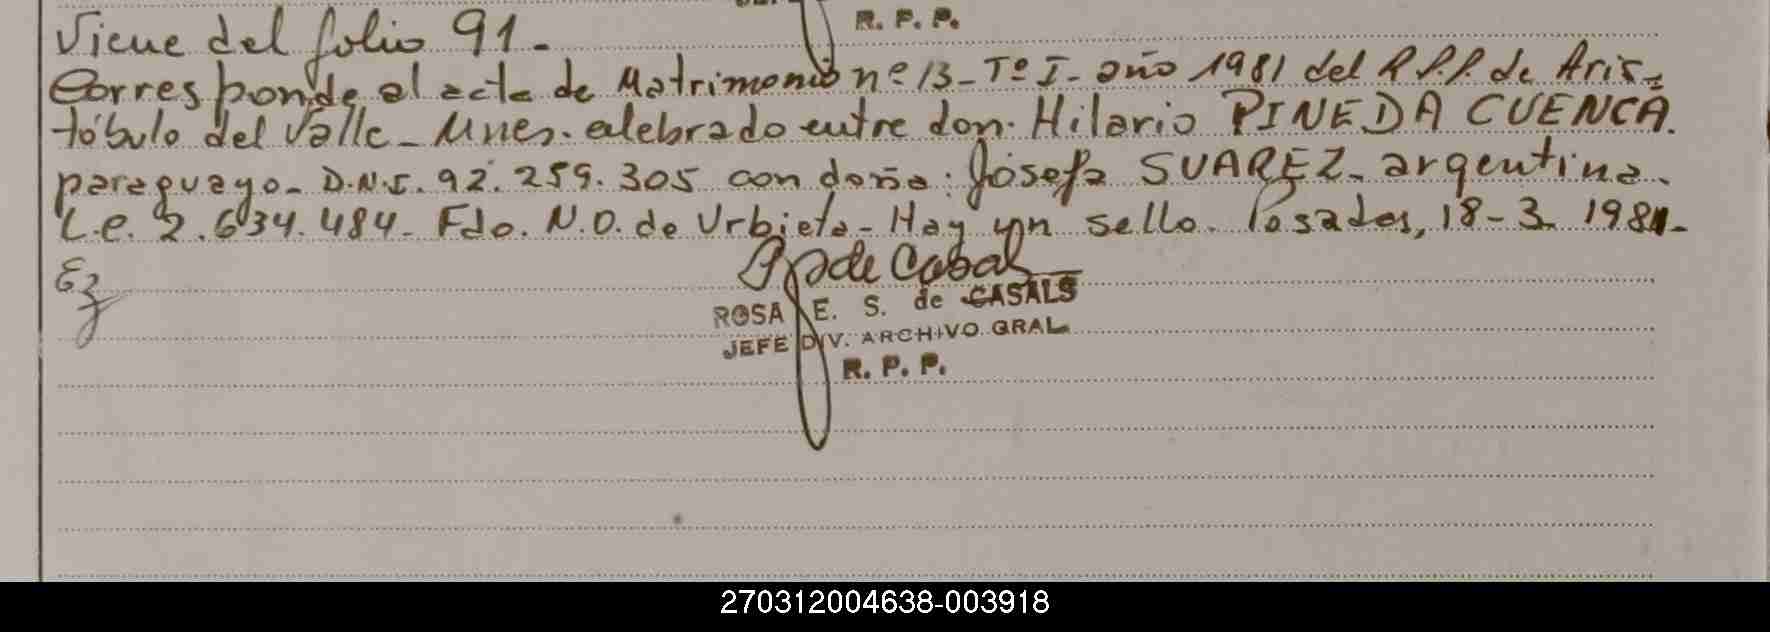 R. P. P.
Viene del folio 91.-
Corresponde al acta de Matrimonio nº 13- Tº I- año 1981 del R.P.P. de Aris-
tóbulo del Valle- Mnes. celebrado entre don: Hilario PINEDA CUENCA.
paraguayo- D.N.I. 92.259.305 con doña: Josefa SUAREZ- argentina-
L.C. 2.634.484- Fdo. N.O. de Urbieta- Hay un sello. Posadas, 18-3-1981-
ROSA E. S. de CASALS
JEFE DIV. ARCHIVO GRAL.
R. P. P.
270312004638-003918